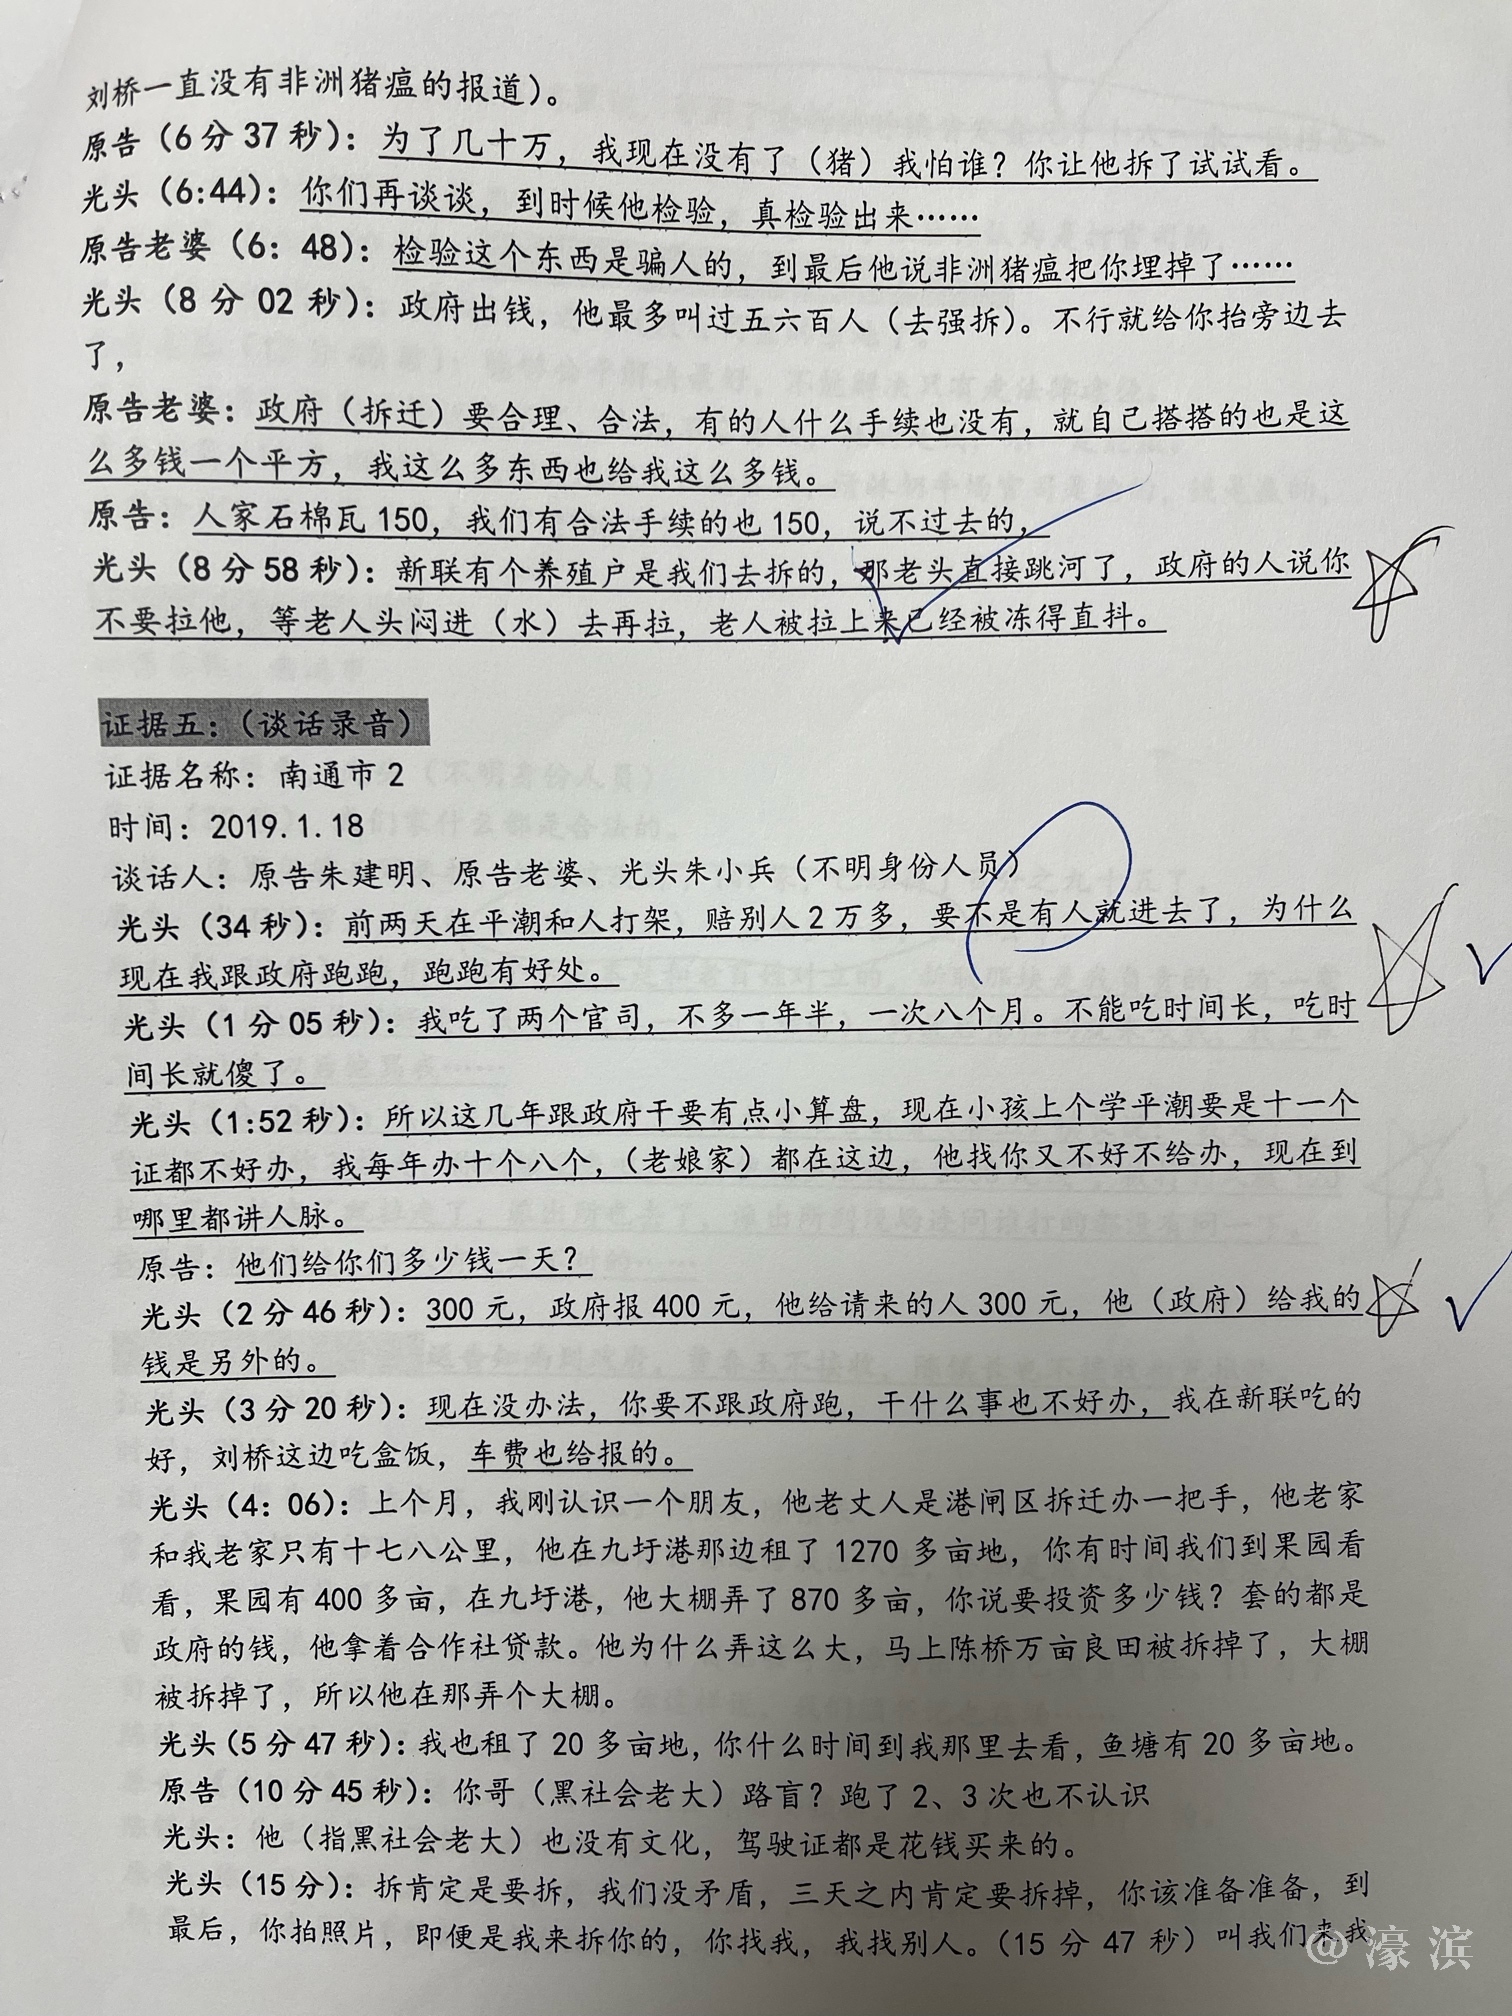 刘桥一直没有非洲猪瘟的报道）。
原告（6分37秒）：为了几十万，我现在没有了（猪）我怕谁？你让他拆了试试看。
光头（6:44）：你们再谈谈，到时候他检验，真检验出来……
原告老婆（6：48）：检验这个东西是骗人的，到最后他说非洲猪瘟把你埋掉了……
光头（8分02秒）：政府出钱，他最多叫过五六百人（去强拆）。不行就给你抬旁边去
了，
原告老婆：政府（拆迁）要合理、合法，有的人什么手续也没有，就自己搭搭的也是这
么多钱一个平方，我这么多东西也给我这么多钱。
原告：人家石棉瓦150，我们有合法手续的也150，说不过去的，
光头（8分58秒）：新联有个养殖户是我们去拆的，那老头直接跳河了，政府的人说你
不要拉他，等老人头闷进（水）去再拉，老人被拉上来已经被冻得直抖。
证据五：（谈话录音）
证据名称：南通市2
时间：2019.1.18
谈话人：原告朱建明、原告老婆、光头朱小兵（不明身份人员）
光头（34秒）：前两天在平潮和人打架，赔别人2万多，要不是有人就进去了，为什么
现在我跟政府跑跑，跑跑有好处。
光头（1分05秒）：我吃了两个官司，不多一年半，一次八个月。不能吃时间长，吃时
间长就傻了。
光头（1:52秒）：所以这几年跟政府干要有点小算盘，现在小孩上个学平潮要是十一个
证都不好办，我每年办十个八个，（老娘家）都在这边，他找你又不好不给办，现在到
哪里都讲人脉。
原告：他们给你们多少钱一天？
光头（2分46秒）：300元，政府报400元，他给请来的人300元，他（政府）给我的
钱是另外的。
光头（3分20秒）：现在没办法，你要不跟政府跑，干什么事也不好办，我在新联吃的
好，刘桥这边吃盒饭，车费也给报的。
光头（4：06）：上个月，我刚认识一个朋友，他老丈人是港闸区拆迁办一把手，他老家
和我老家只有十七八公里，他在九圩港那边租了1270多亩地，你有时间我们到果园看
看，果园有400多亩，在九圩港，他大棚弄了870多亩，你说要投资多少钱？套的都是
政府的钱，他拿着合作社贷款。他为什么弄这么大，马上陈桥万亩良田被拆掉了，大棚
被拆掉了，所以他在那弄个大棚。
光头（5分47秒）：我也租了20多亩地，你什么时间到我那里去看，鱼塘有20多亩地。
原告（10分45秒）：你哥（黑社会老大）路盲？跑了2、3次也不认识
光头：他（指黑社会老大）也没有文化，驾驶证都是花钱买来的。
光头（15分）：拆肯定是要拆，我们没矛盾，三天之内肯定要拆掉，你该准备准备，到
最后，你拍照片，即便是我来拆你的，你找我，我找别人。（15分47秒）叫我们来我
@濠滨